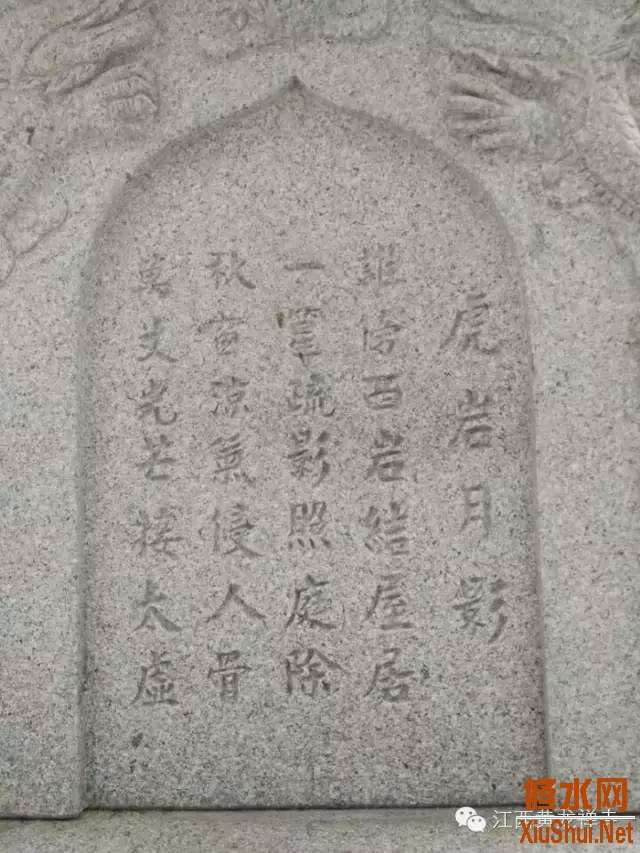 虎岩月影
誰傍西岩結屋居
一篁疏影照庭除
秋宵涼氣侵人骨
萬丈光芒接太虛
修水网
XiuShui.Net
江西黄龙禅寺